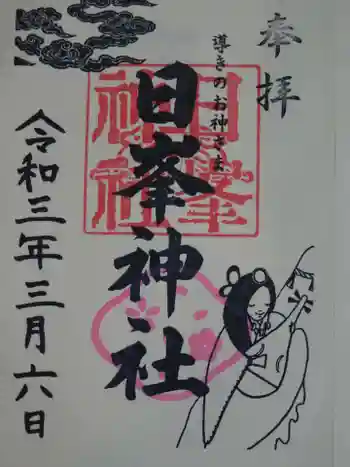 奉拝
導きのお神さま
日峯神社
日峯
神社
令和三年三月六日